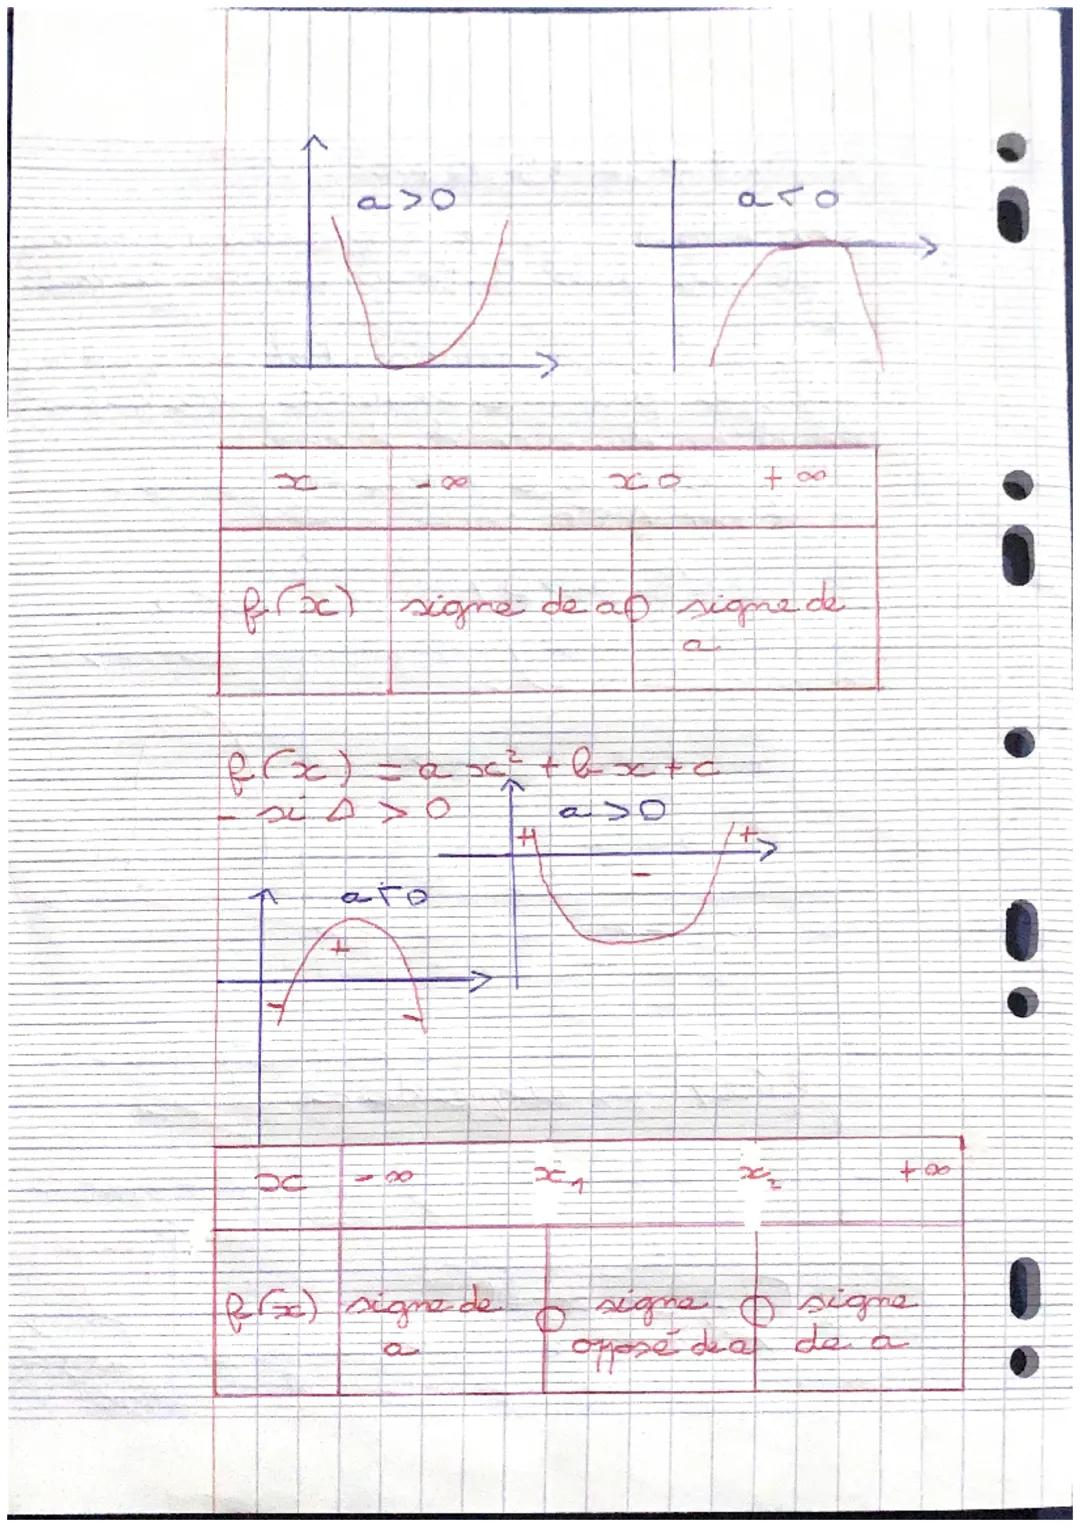 a > 0 a < 0
x - ∞ x0 + ∞
f(x) signe de a 0 signe de
a
f(x) = a x² + b x + c
- si Δ > 0 a > 0
+ +
-
a < 0
+
- -
x - ∞ x₁ x₂ + ∞
f(x) signe de 0 signe 0 signe
a opposé de a de a